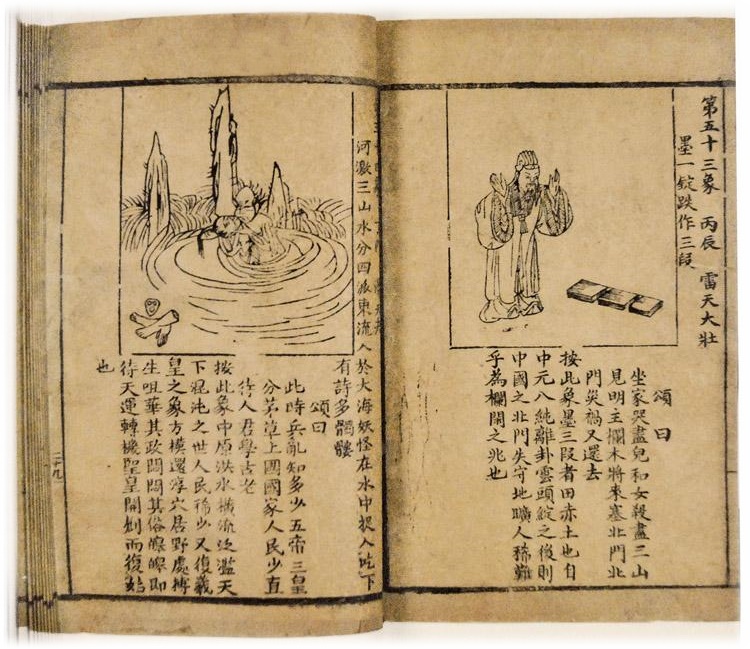 第五十三象 丙辰 雷天大壯
墨一錠跌作三段
頌曰
坐家哭盡兒和女殺盡三山
見明主攔木將來塞北門北
門災禍又還去
按此象墨三段者田赤土也自
中元八純離卦雲頭綻之後則
中國之北門失守地曠人稀難
乎為欄開之兆也
河激三山水分四派東流入於大海妖怪在水中捉人吃下
有許多髑髏
頌曰
此時兵亂知多少五帝三皇
分茅草上國國家人民少直
待人君學古老
按此象中原洪水橫流泛濫天
下混沌之世人民稀少又復羲
皇之象方模還淳穴居野處摶
生咀華其政悶悶其俗皞皞即
待天運轉機聖皇開創而復始
也
二十九